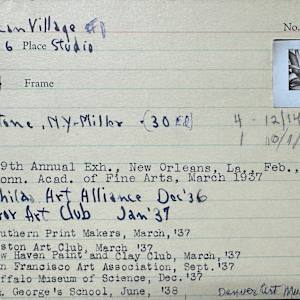 can Village
No.
6 Place Studio
Frame
tone, NY-Miller - (30 Ed) 4 - 12/14
1 10/1
9th Annual Exh., New Orleans, La., Feb.,
onn. Acad. of Fine Arts, March 1937
hila. Art Alliance Dec '36
Art Club Jan '37
uthern Print Makers, March, '37
ston Art Club, March, '37
w Haven Paint and Clay Club, Mar, '37
n Francisco Art Association, Sept. '37
ffalo Museum of Science, Dec. '37
. George's School, June, '38 Denver Art Mus